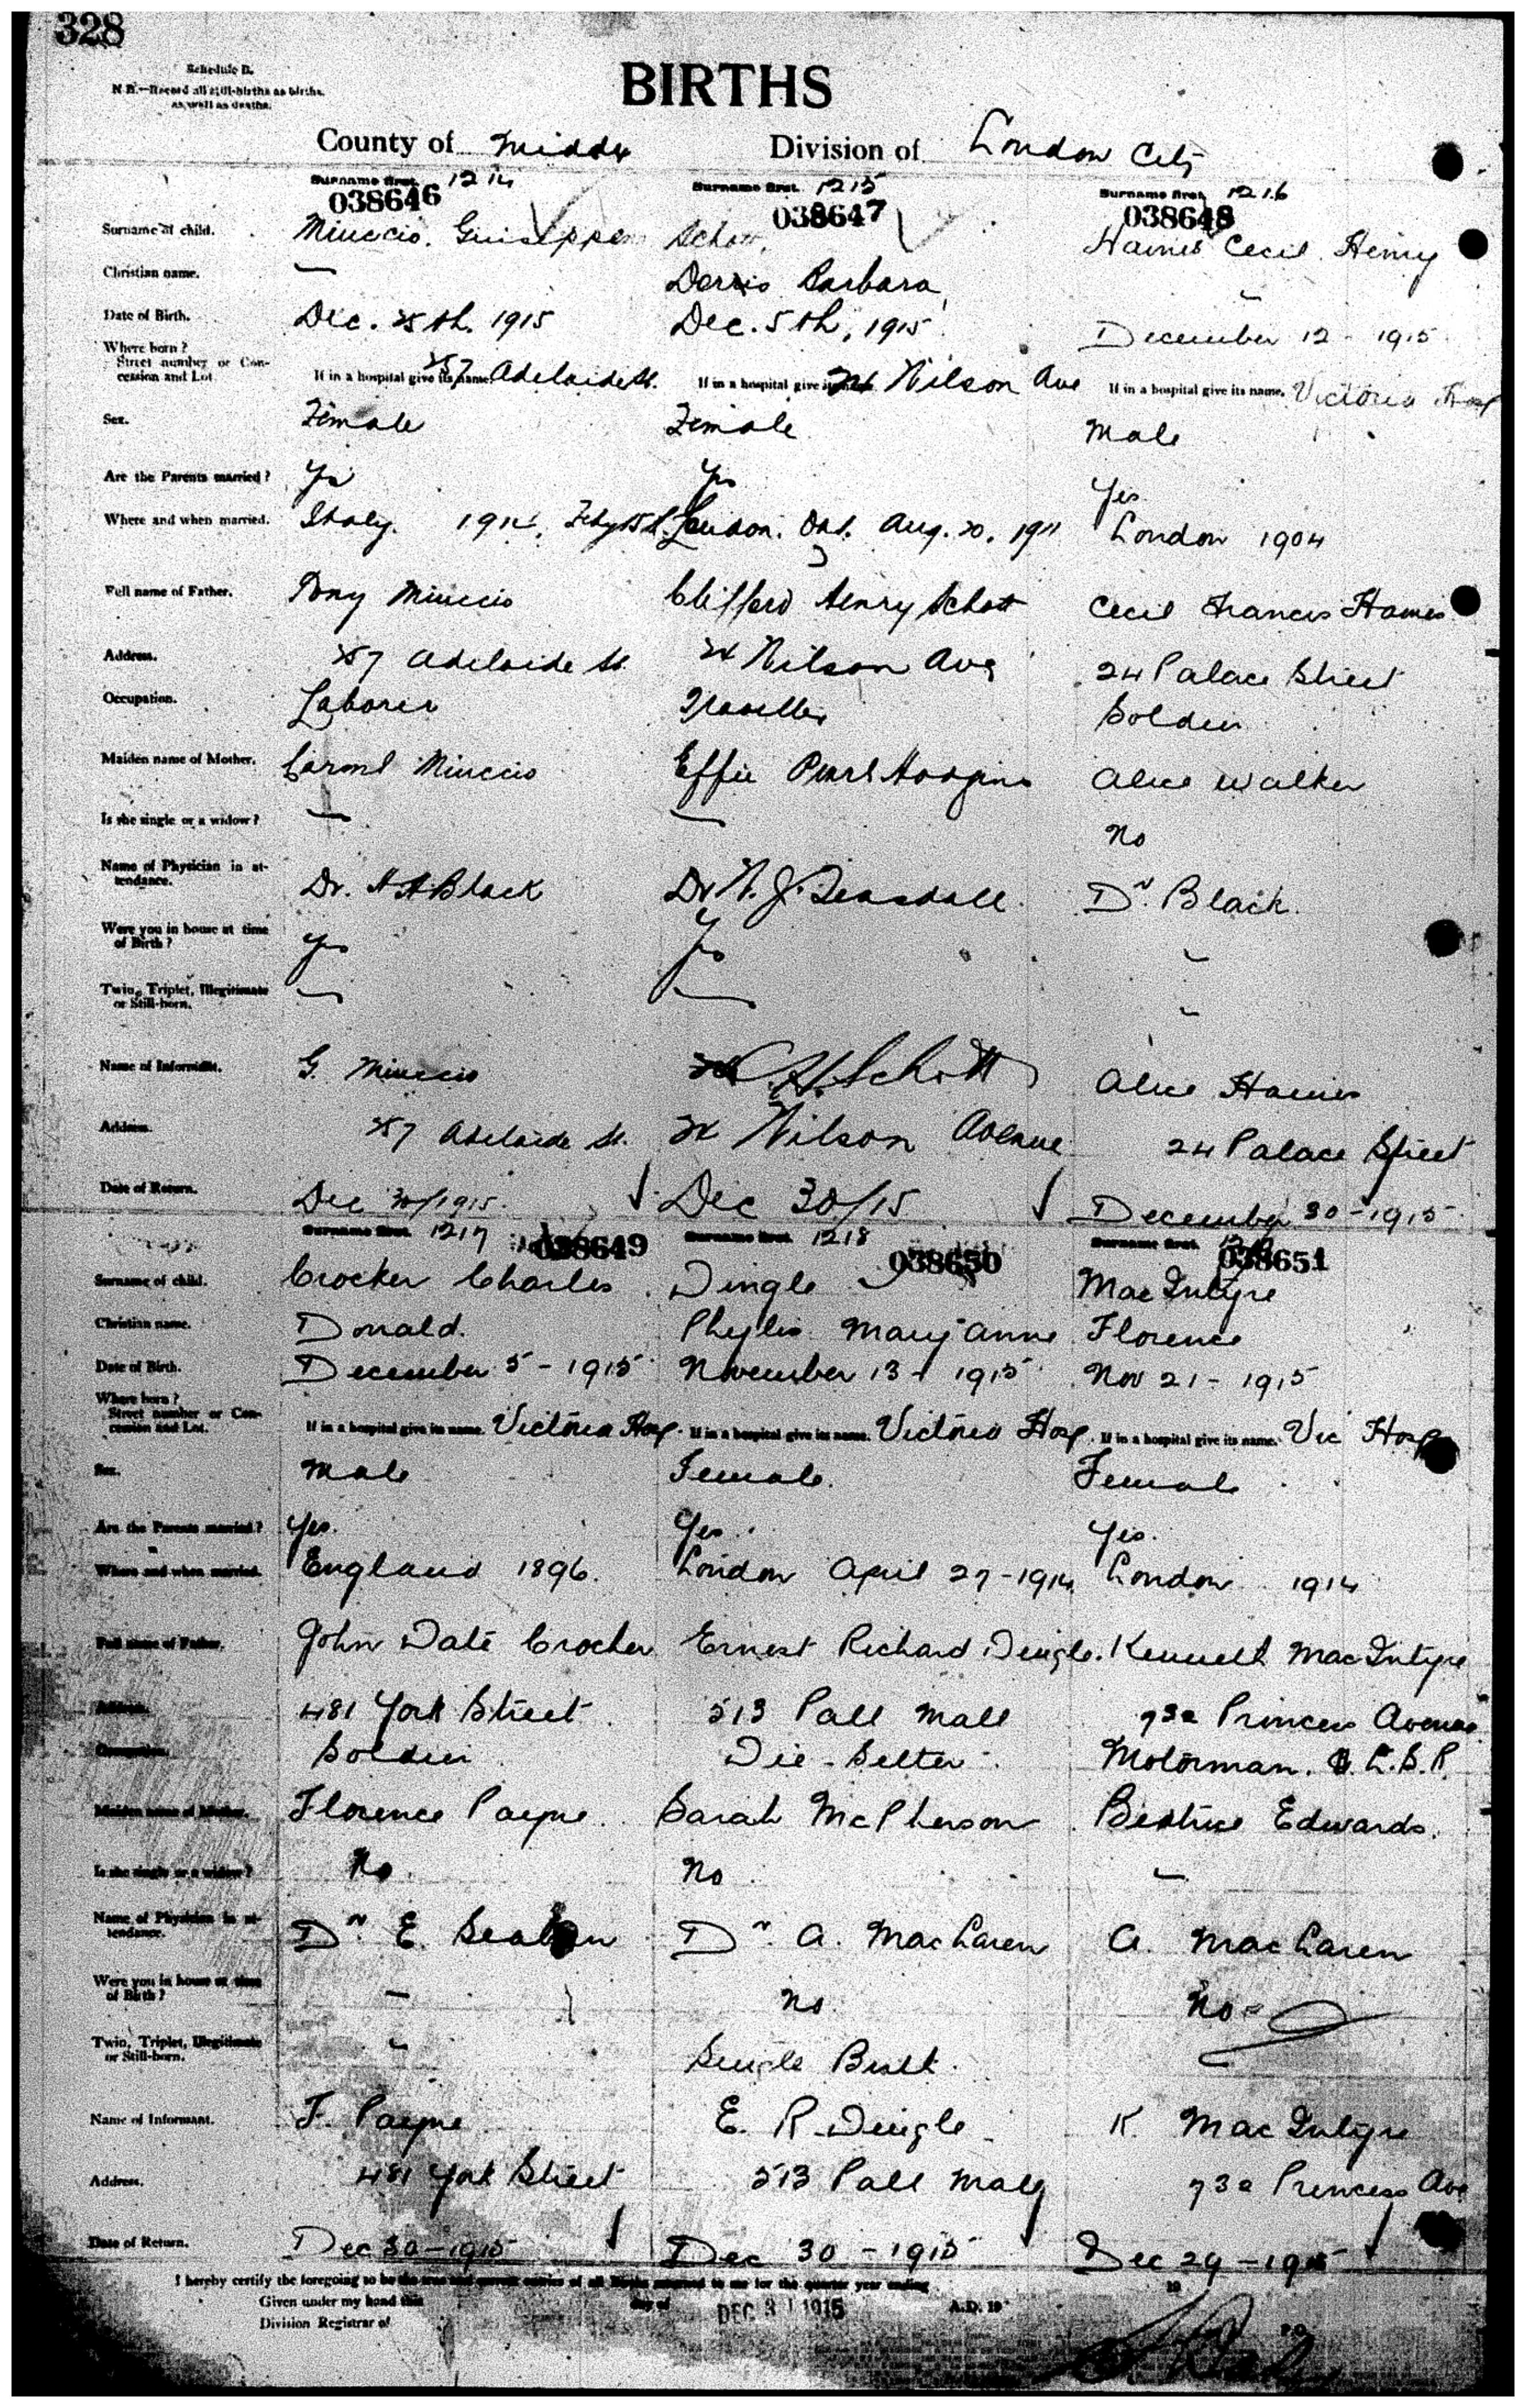 328
Schedule B.
N.B.—Record all still-births as births.
as well as deaths.
BIRTHS
County of Middx Division of London City
Surname first. 1214 Surname first. 1215 Surname first. 1216
038646 038647 038648
Surname of child. Miuccio. Guiseppe Schott, Haines Cecil Henry
Christian name. — Dorris Barbara
Date of Birth. Dec. 25th. 1915 Dec. 5th, 1915 December 12 - 1915
Where born?
Street number or Concession and Lot. If in a hospital give its name. 257 Adelaide St. If in a hospital give its name. Wilson Ave If in a hospital give its name. Victoria Hosp
Sex. Female Female Male
Are the Parents married? Yes Yes Yes
Where and when married. Italy. London. Ont. Aug. 20. 1911 London 1904
Full name of Father. Tony Miuccio Clifford Henry Schott Cecil Francis Haines
Address. 257 Adelaide St. Wilson Ave 24 Palace Street
Occupation. Laborer Traveller Soldier
Maiden name of Mother. Carmel Miuccio Effie Pearl Hodgins Alice Walker
Is she single or a widow? — — No
Name of Physician in attendance. Dr. H A Black Dr W. J. Teasdall. Dr. Black.
Were you in house at time of Birth? Yes Yes -
Twin, Triplet, Illegitimate or Still-born. — — -
Name of Informant. G. Miuccio C. H. Schott Alice Haines
Address. 257 Adelaide St. Wilson Avenue 24 Palace Street
Date of Return. Dec 30/1915. Dec 30/15 December 30 - 1915
Surname first. 1217 Surname first. 1218 Surname first.
038649 038650 038651
Surname of child. Crocker Charles Dingle MacIntyre
Christian name. Donald. Phylis Mary Anne Florence
Date of Birth. December 5 - 1915 November 13 - 1915 Nov 21 - 1915
Where born?
Street number or Concession and Lot. If in a hospital give its name. Victoria Hosp. If in a hospital give its name. Victoria Hosp. If in a hospital give its name. Vic Hosp
Sex. Male Female. Female
Are the Parents married? Yes. Yes. Yes.
Where and when married. England 1896. London April 27 - 1914 London 1914
Full name of Father. John Date Crocker Ernest Richard Dingle. Kenneth MacIntyre
Address. 481 York Street 513 Pall Mall 732 Princess Avenue
Occupation. Soldier Die-Setter. Motorman. L.S.R.
Maiden name of Mother. Florence Payne. Sarah McPherson Beatrice Edwards.
Is she single or a widow? No. No -
Name of Physician in attendance. Dr. E. Seaborn Dr. A. MacLaren A. MacLaren
Were you in house at time of Birth? - No. No -
Twin, Triplet, Illegitimate or Still-born. - Single Birth.
Name of Informant. F. Payne E. R. Dingle K. MacIntyre
Address. 481 York Street 513 Pall Mall 732 Princess Ave
Date of Return. Dec 30 - 1915 Dec 30 - 1915 Dec 29 - 1915
I hereby certify the foregoing to be the true and correct entries of all Births returned to me for the quarter year ending 19
Given under my hand this day of DEC 31 1915 A.D. 19
Division Registrar of